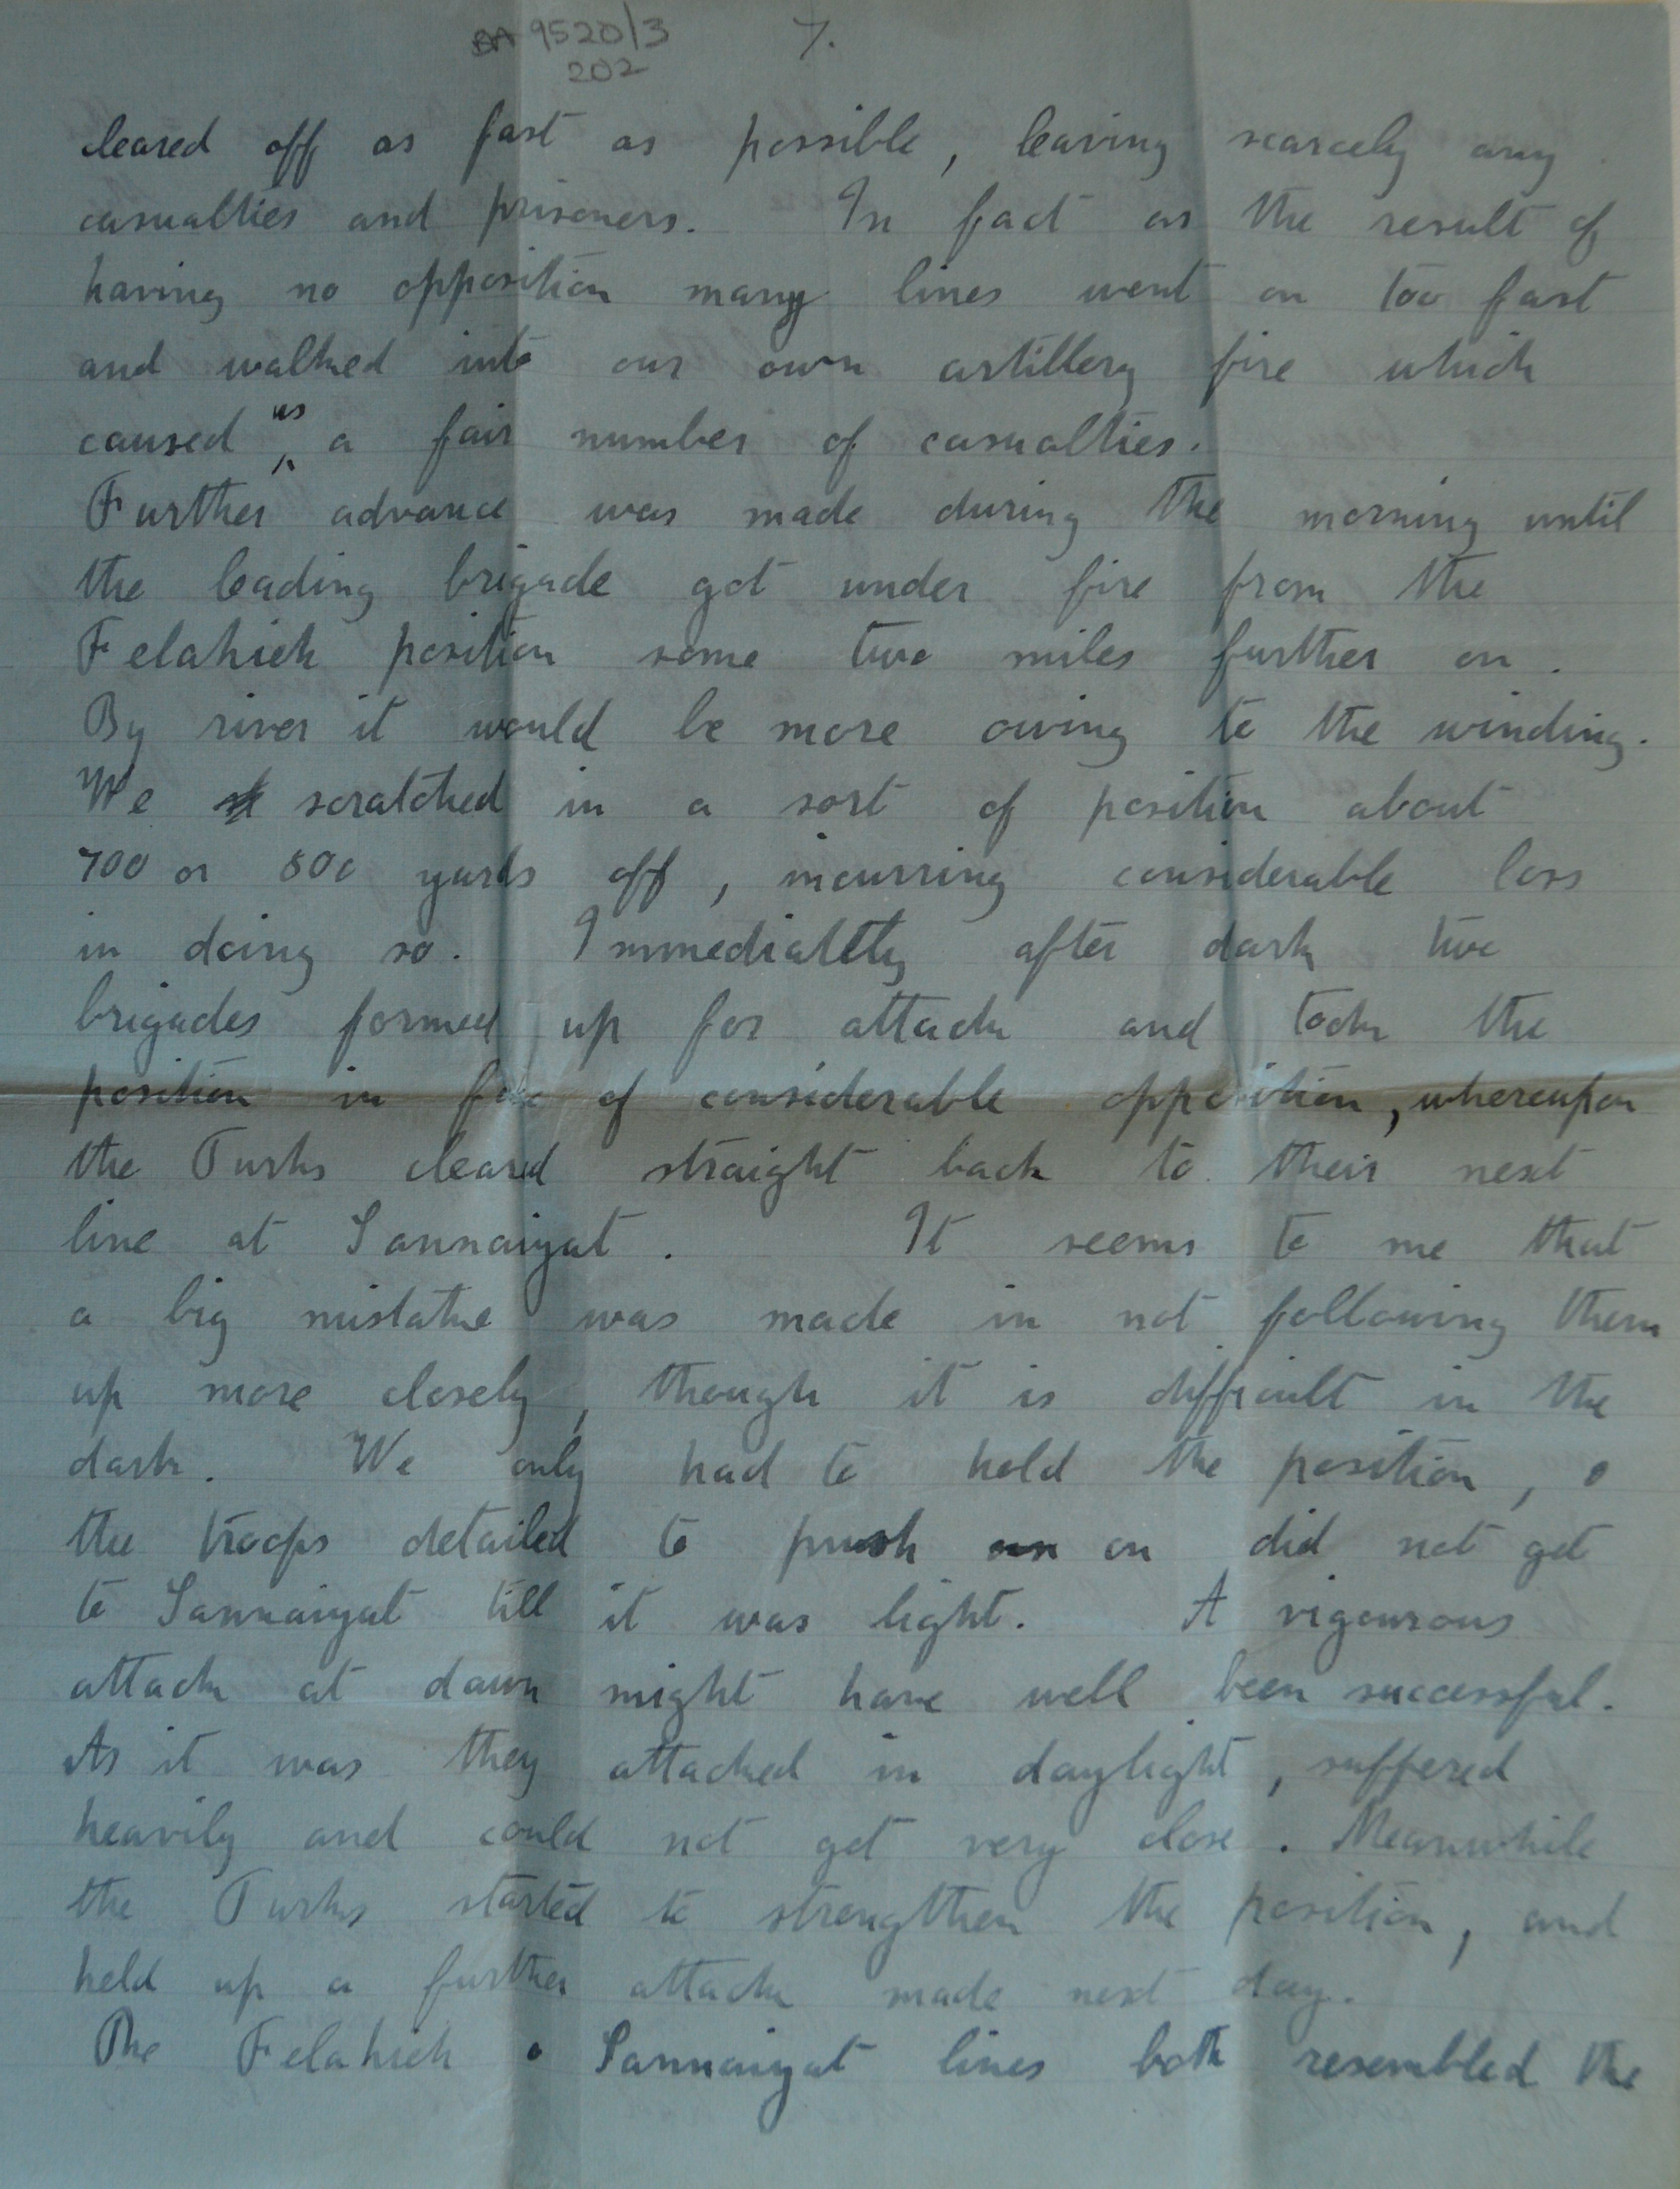 BA 9520/3 7.
202
cleared off as fast as possible, leaving scarcely any
casualties and prisoners. In fact as the result of
having no opposition many lines went on too fast
and walked into our own artillery fire which
caused us a fair number of casualties.
Further advance was made during the morning until
the leading brigade got under fire from the
Felahieh position some two miles further on.
By river it would be more owing to the winding.
We scratched in a sort of position about
700 or 800 yards off, incurring considerable loss
in doing so. Immediatlty after dark two
brigades formed up for attack and took the
position in face of considerable opposition, whereupon
the Turks cleared straight back to their next
line at Sannaiyat. It seems to me that
a big mistake was made in not following them
up more closely, though it is difficult in the
dark. We only had to hold the position, &
the troops detailed to push on did not get
to Sannaiyat till it was light. A vigourous
attack at dawn might have well been successful.
As it was they attacked in daylight, suffered
heavily and could not get very close. Meanwhile
the Turks started to strengthen the position, and
held up a further attack made next day.
The Felahieh & Sannaiyat lines both resembled the